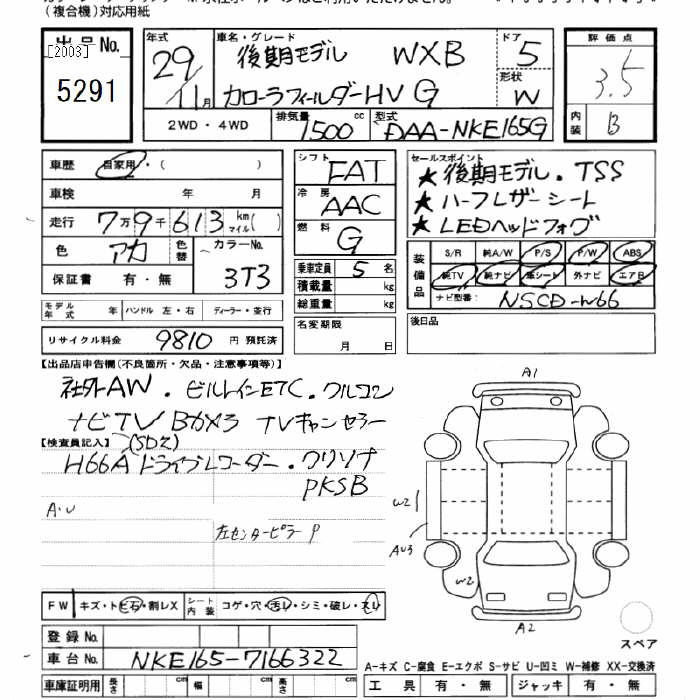 (複合機)対応用紙
出品No.
[2003]
5291
年式
29/11月
車名・グレード
後期モデル WXB
カローラフィールダーHV G
ドア
5
形状
W
評価点
3.5
内装
B
2WD・4WD
排気量 1500cc
型式 DAA-NKE165G
車歴 自家用・( )
車検 年 月
走行 7万9千613km マイル( )
色 アカ 色替 カラーNo. 3T3
保証書 有・無
シフト FAT
冷房 AAC
燃料 G
乗車定員 5名
積載量 kg
総重量 kg
セールスポイント
★後期モデル・TSS
★ハーフレザーシート
★LEDヘッドフォグ
装備品
S/R 純A/W P/S P/W ABS
純TV 純ナビ 革シート 外ナビ エアB
ナビ型番: NSCD-W66
モデル年式 年 ハンドル 左・右 ディーラー・並行
リサイクル料金 9810円 預託済
名変期限 月 日
後日品
【出品店申告欄(不良箇所・欠品・注意事項等)】
社外AW. ビルトインETC. クルコン
ナビTV Bカメラ TVキャンセラー
【検査員記入】
(SDZ)
H66A ドライブレコーダー. クリソナ
PKSB
A.U
左センターピラー P
A1
W2
AU3
W2
A2
スペア
FW キズ・トビ石・割レX
シート内装 コゲ・穴・汚レ・シミ・破レ・スレ
登録No.
車台No. NKE165-7166322
車庫証明用 長さ cm 幅 cm 高さ cm
A-キズ C-腐食 E-エクボ S-サビ U-凹ミ W-補修 XX-交換済
工具 有・無 ジャッキ 有・無